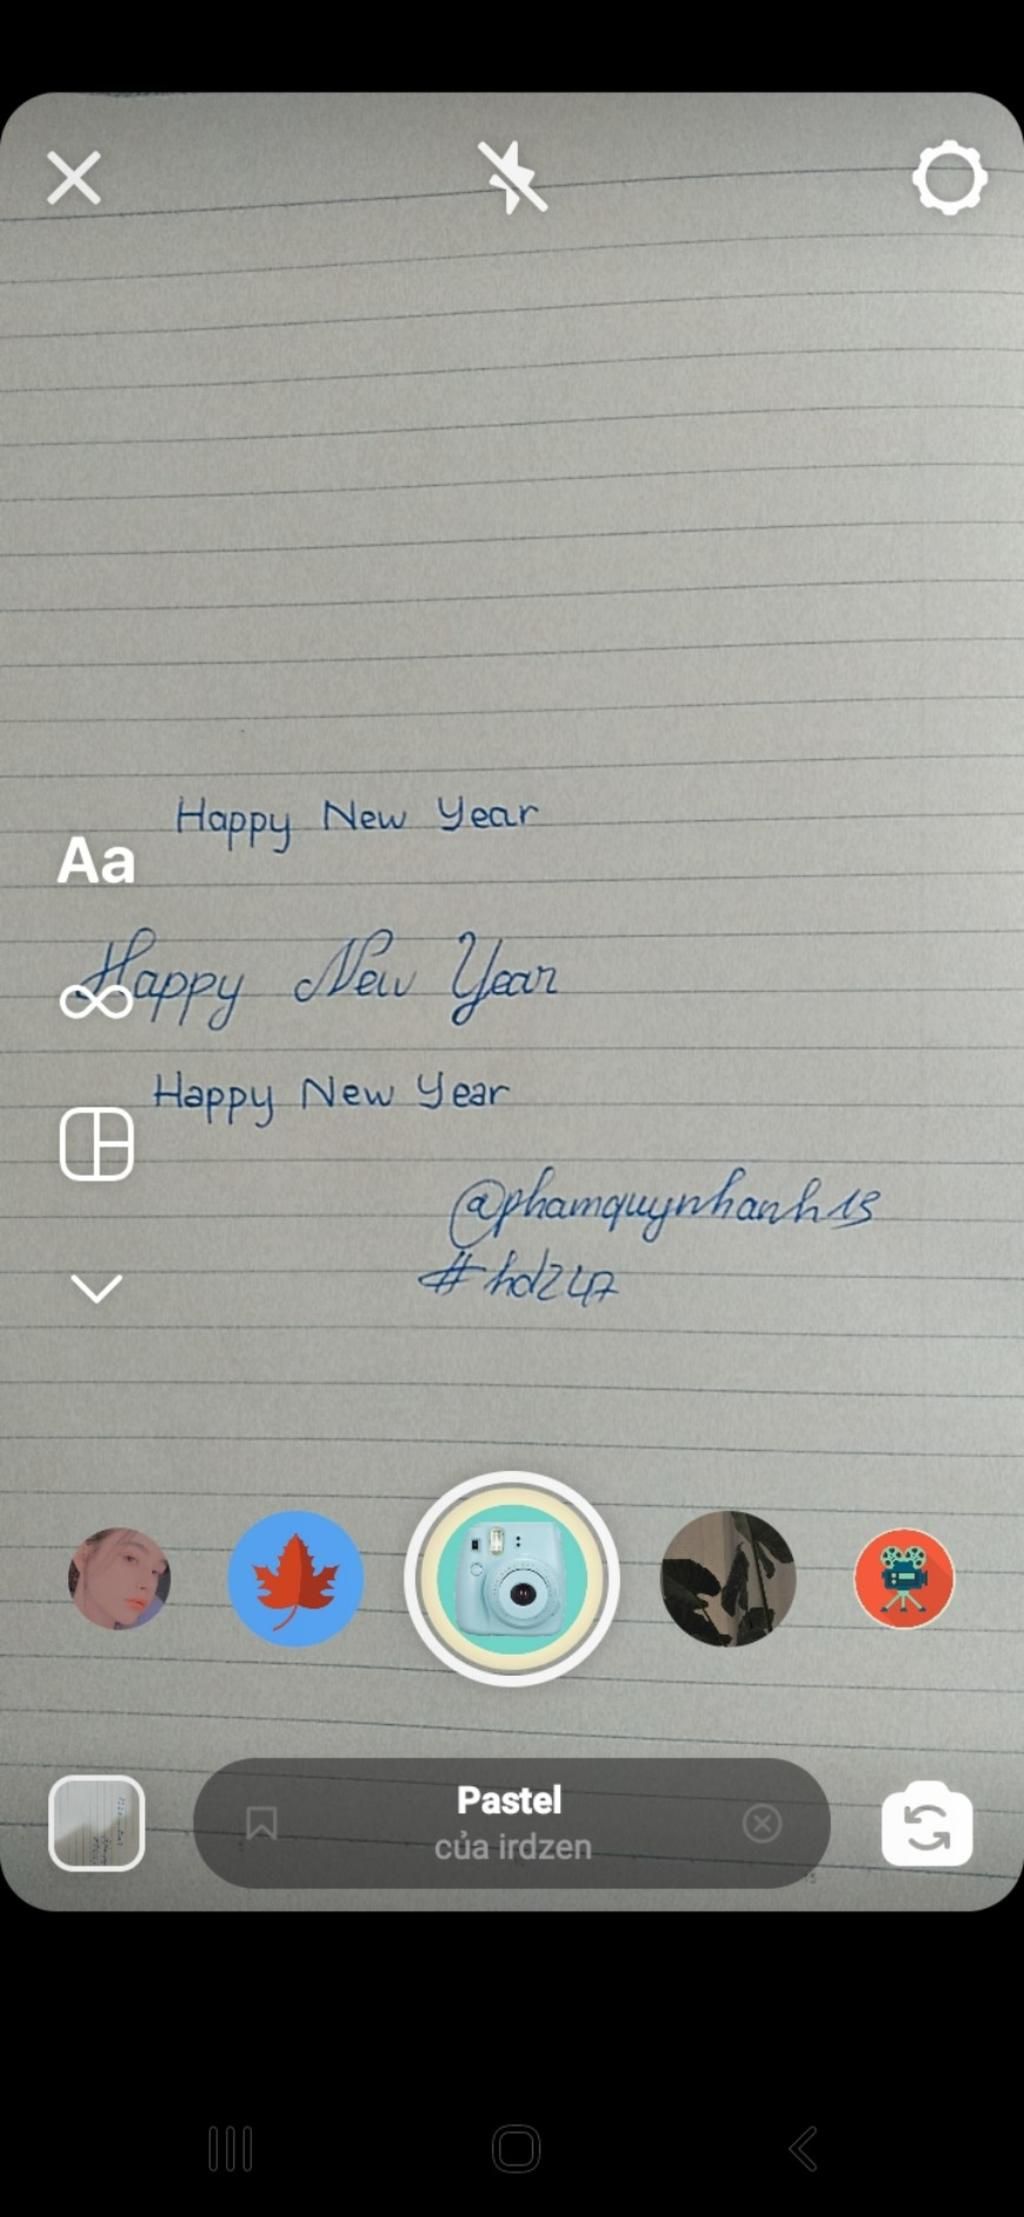 Happy New Year
Aa
Happy New Year
Happy New Year
@phamquynhanh13
#hd247
Pastel
của irdzen